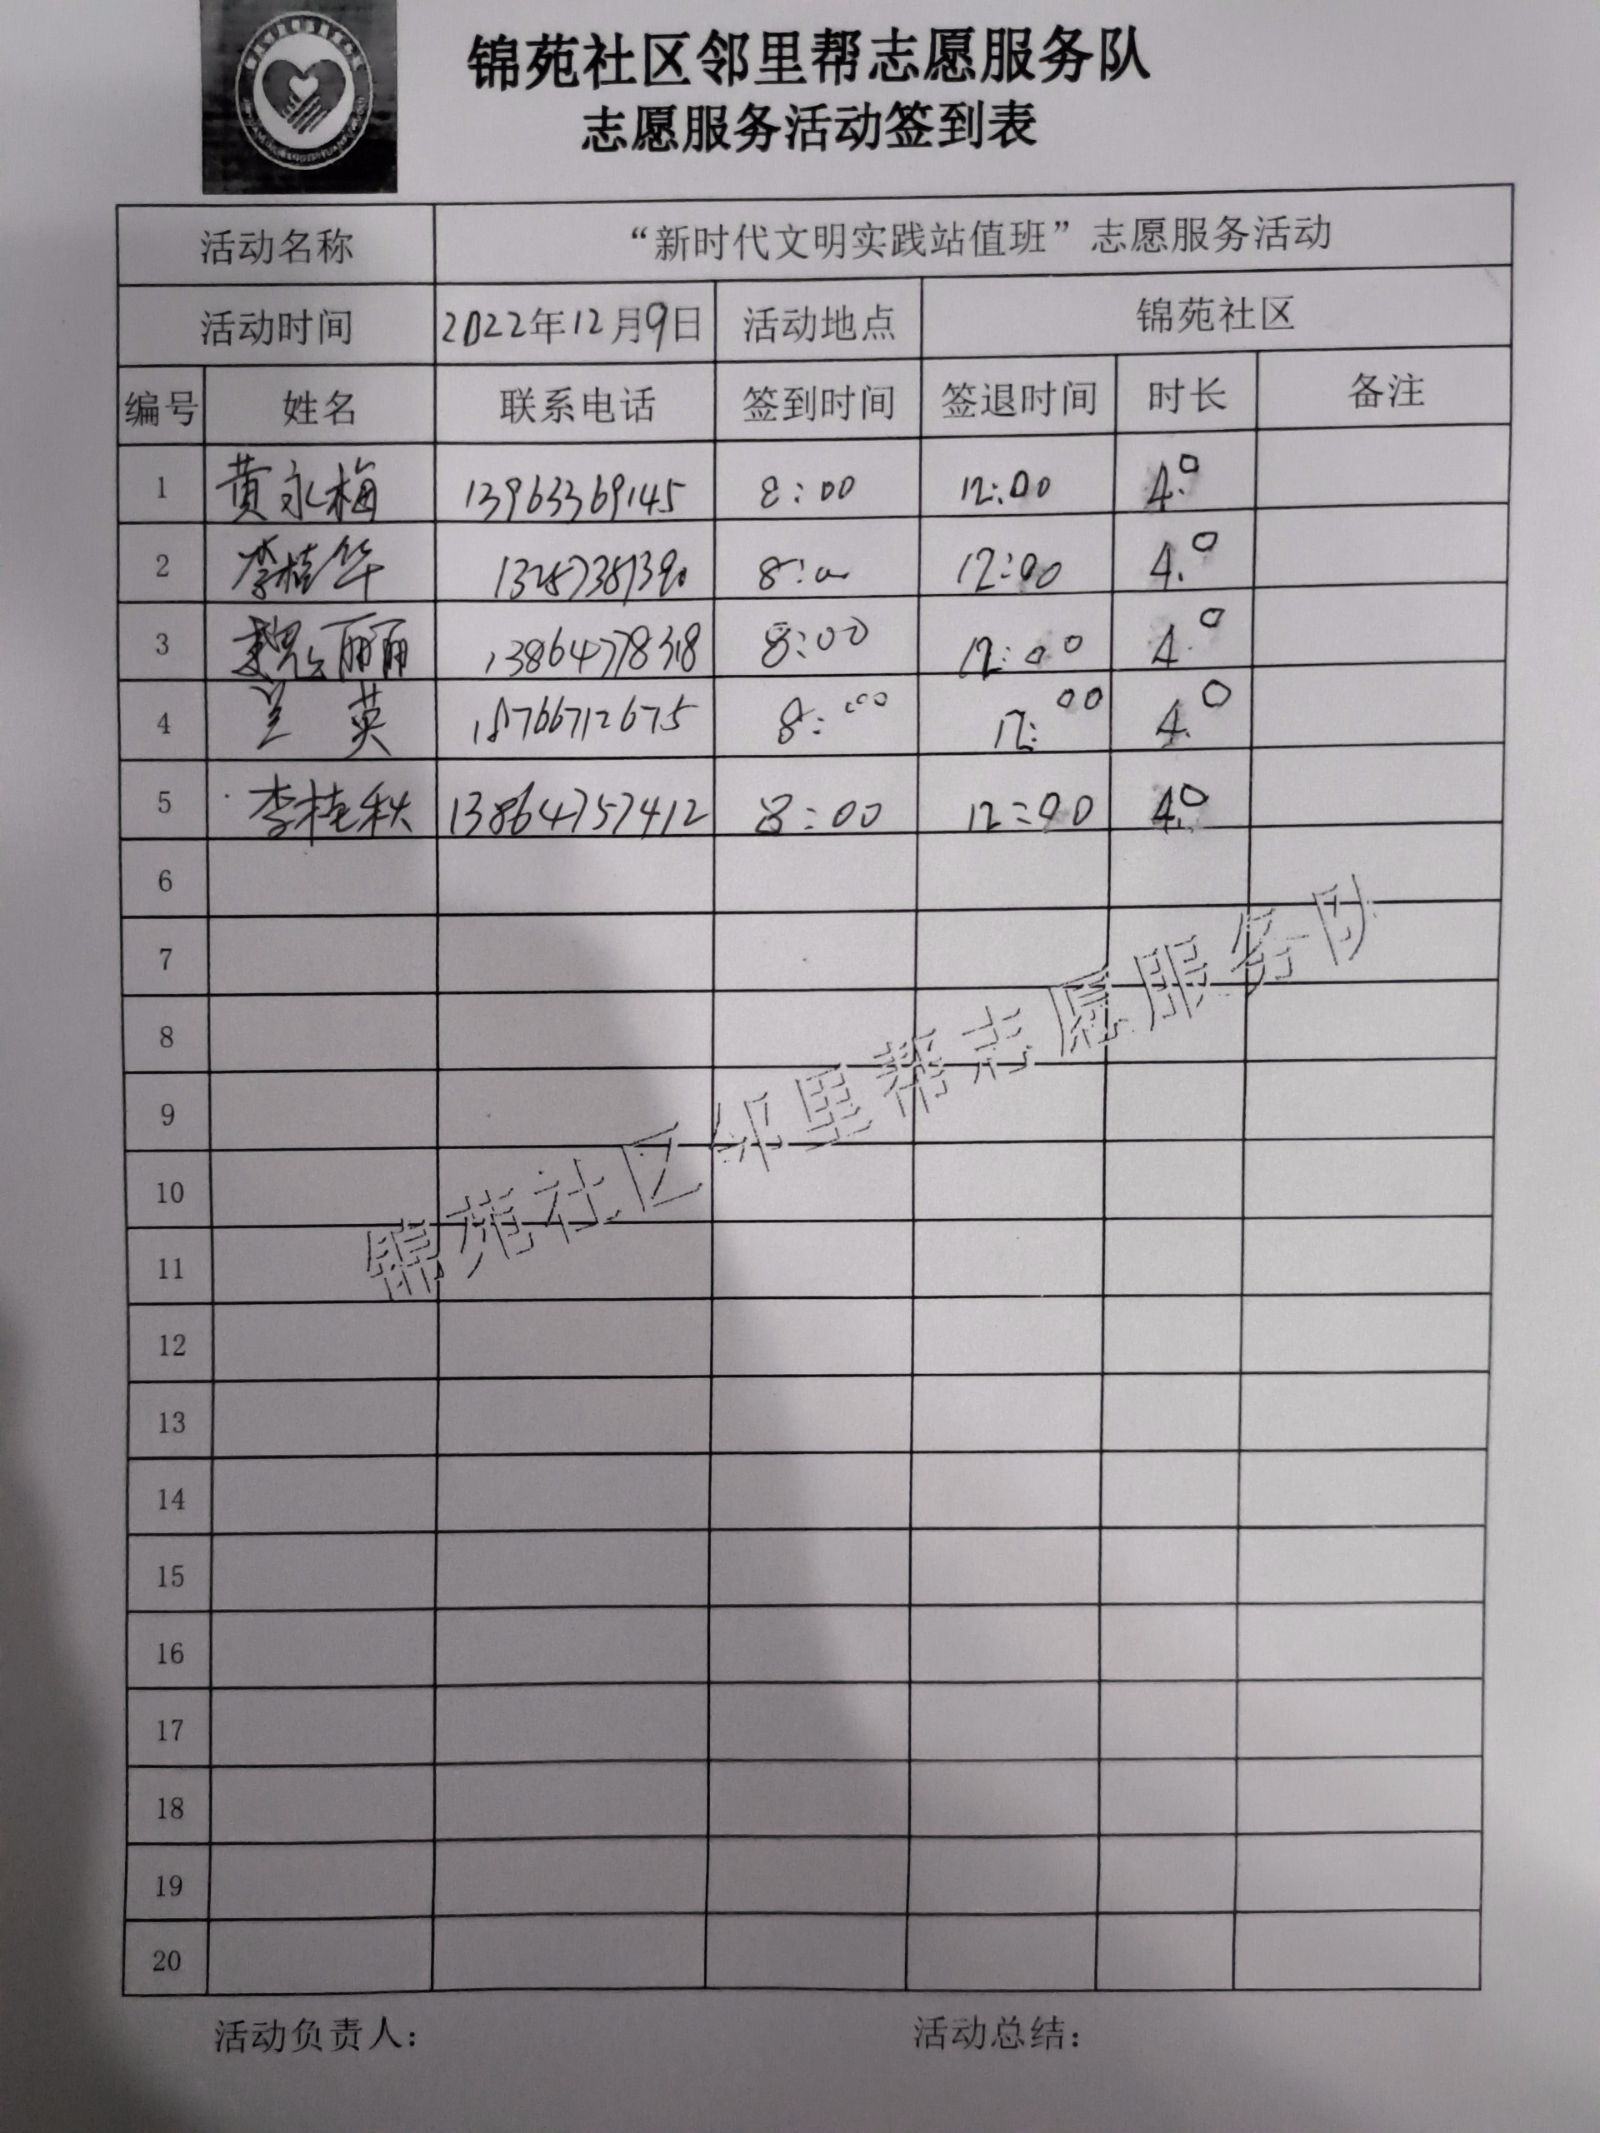 锦苑社区邻里帮志愿服务队
志愿服务活动签到表
活动名称 “新时代文明实践站值班”志愿服务活动
活动时间 2022年12月9日 活动地点 锦苑社区
编号 姓名 联系电话 签到时间 签退时间 时长 备注
1 黄永梅 13963369145 8:00 12:00 4.0
2 李桂华 8:00 12:00 4.0
3 魏丽丽 13864778318 8:00 12:00 4.0
4 兰英 18766712675 8:00 12:00 4.0
5 李桂秋 13864757412 8:00 12:00 4.0
6
7
8
9
10
11
12
13
14
15
16
17
18
19
20
锦苑社区邻里帮志愿服务队
活动负责人: 活动总结: